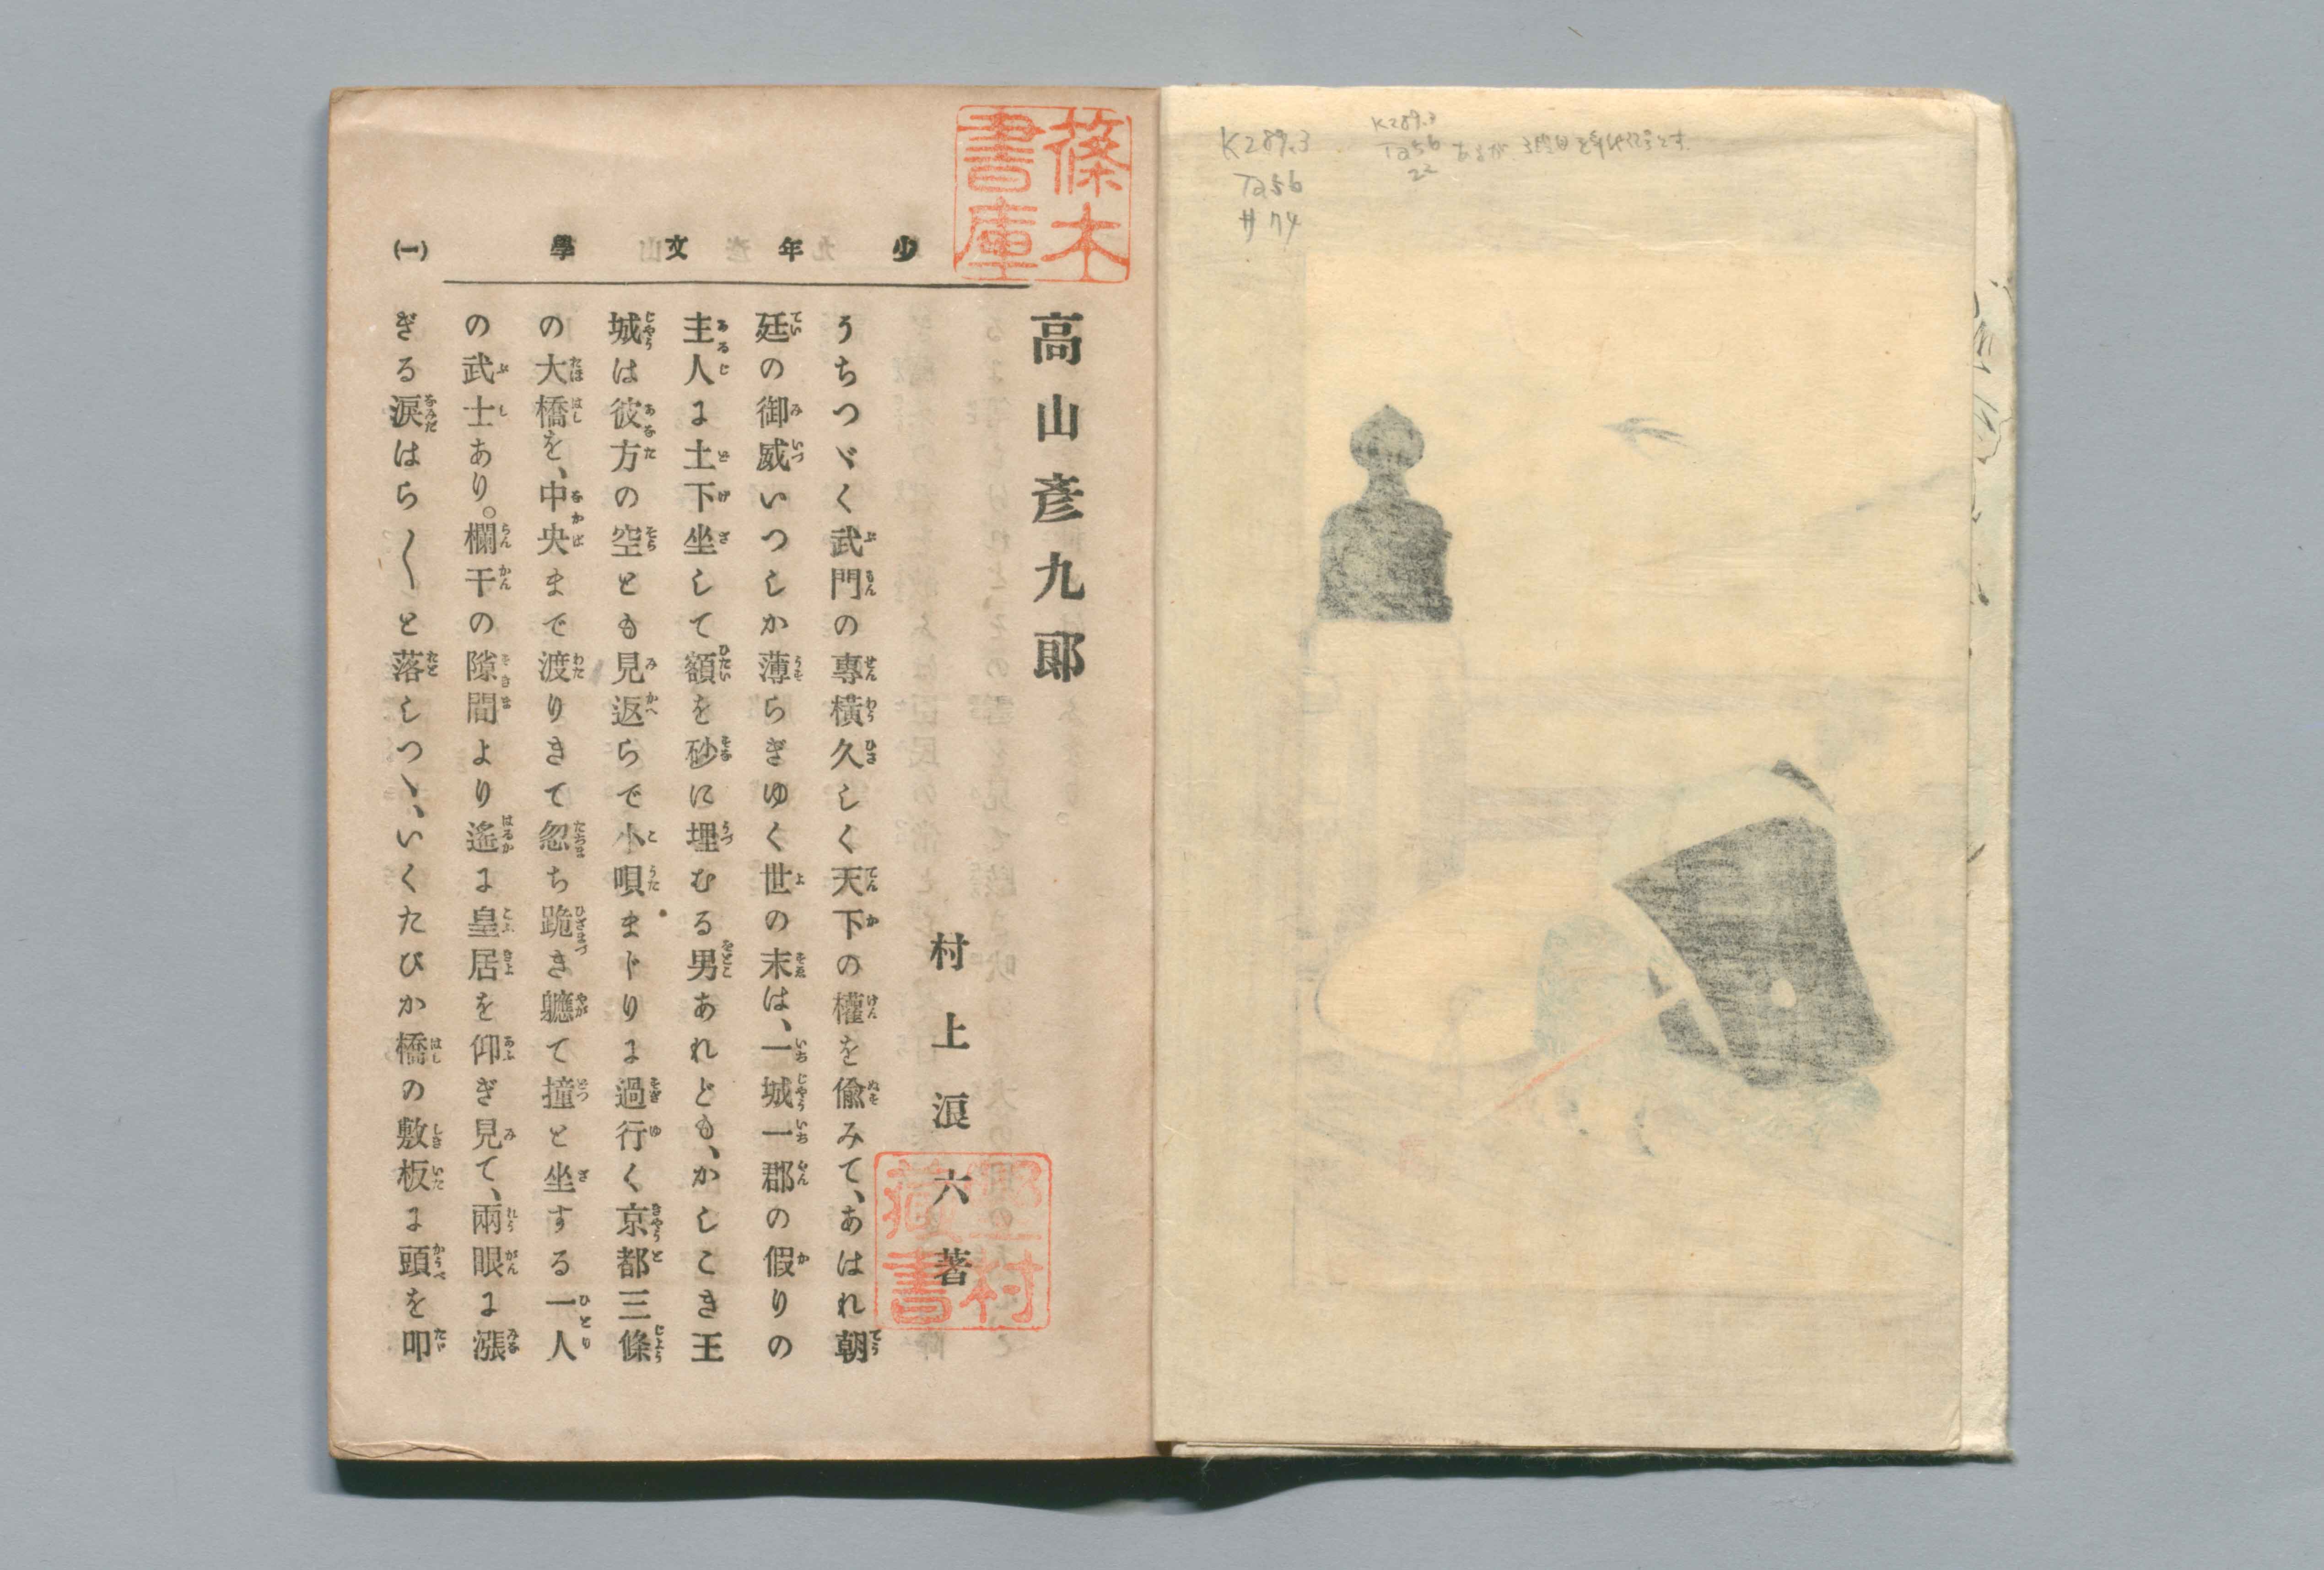 K289.3
Ta56
#74
K289.3
Ta56
22
少年文學
(一)
篠木
書庫
高山彦九郎
村上浪六著
うちつゞく武門の專横久しく天下の權を偸みて、あはれ朝
廷の御威いつしか薄らぎゆく世の末は、一城一郡の假りの
主人に土下坐して額を砂に埋むる男あれども、かしこき王
城は彼方の空とも見返らで小唄まじりに過行く京都三條
の大橋を、中央まで渡りきて忽ち跪き軈て撞と坐する一人
の武士あり。欄干の隙間より遙に皇居を仰ぎ見て、兩眼に漲
ぎる涙はら〳〵と落しつゝ、いくたびか橋の敷板に頭を叩
藏書